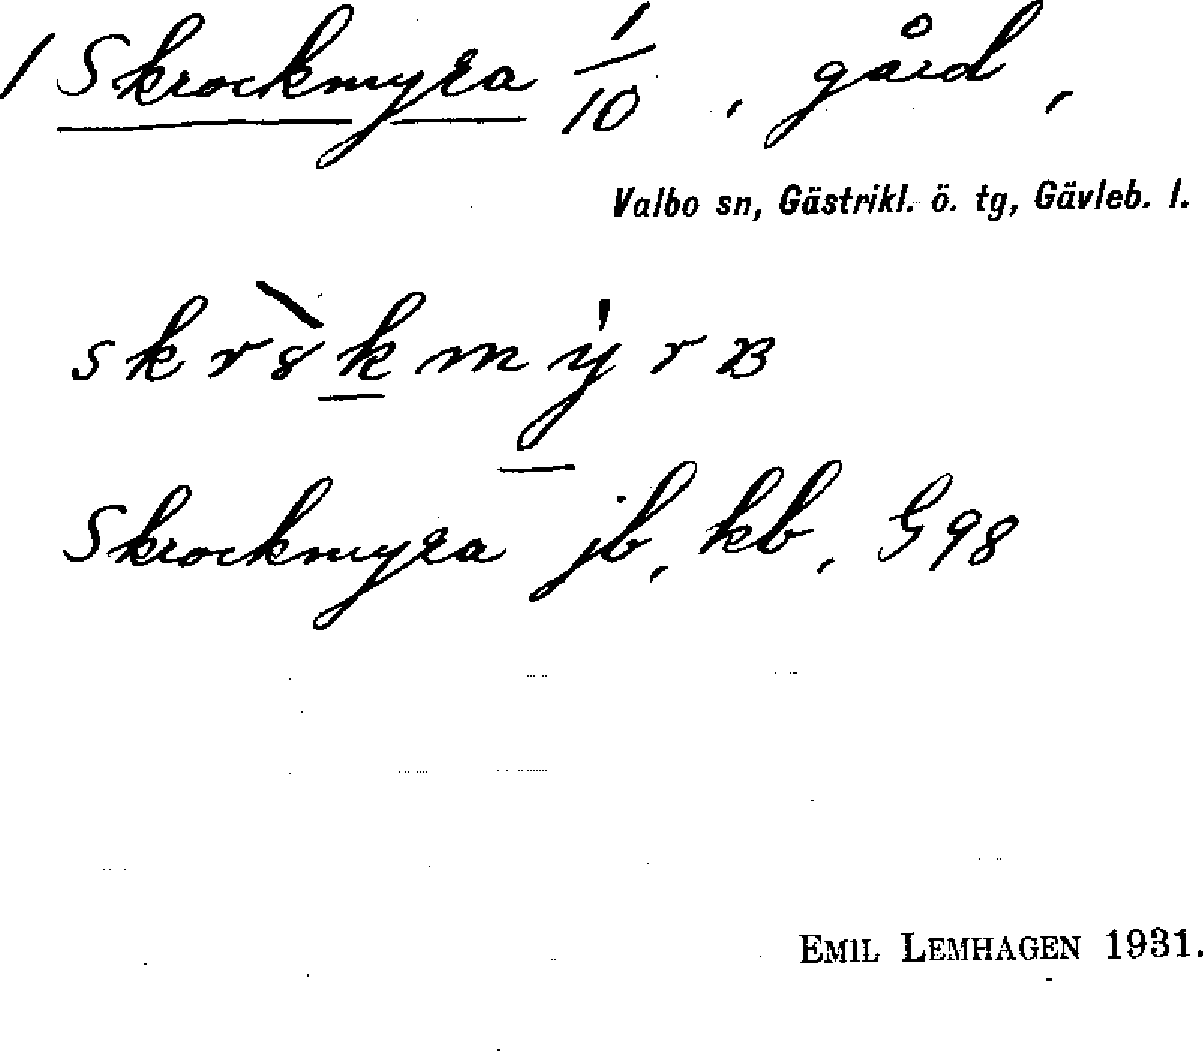 1 Skrockmyra 1/10, gård,
Valbo sn, Gästrikl. ö. tg, Gävleb. l.
Skrockmyra jb, kb, G98
EMIL LEMHAGEN 1931.